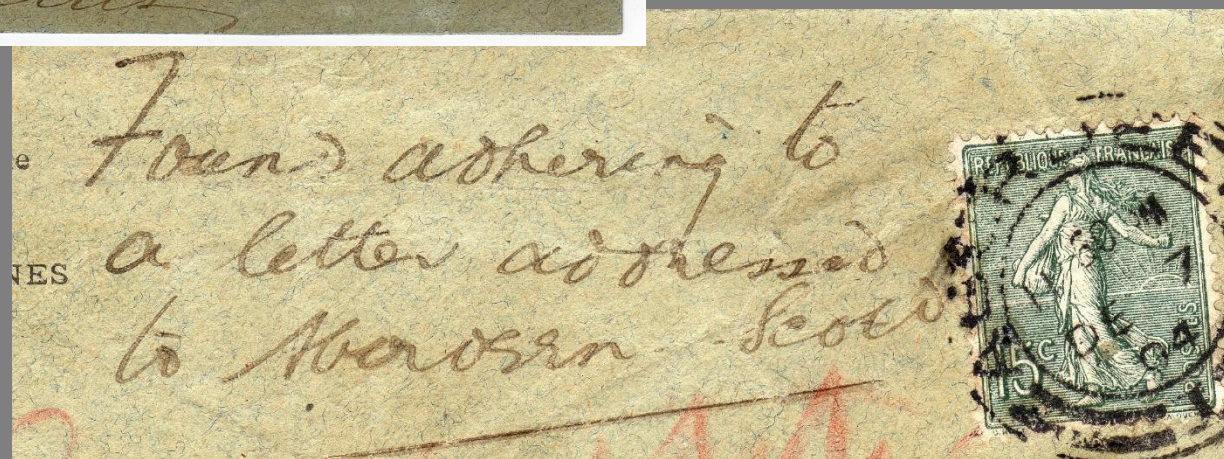 Found adhering to
a letter addressed
to Aberdeen Scotd
e
NES
REPUBLIQUE FRANÇAISE
15 c
POSTES
7
DE
04